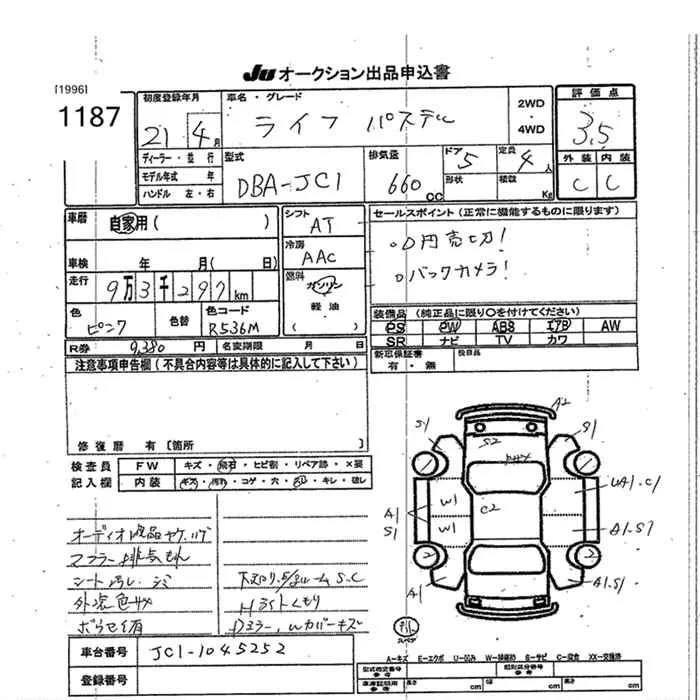 JU オークション出品申込書
[1996]
1187
初度登録年月
21年 4月
車名・グレード
ライフ パステル
2WD
・
4WD
評価点
3.5
外装 内装
C C
ディーラー・並 行
モデル年式 年
ハンドル 左・右
型式
DBA-JC1
排気量
660 cc
ドア 5
形状
定員 4人
積載 Kg
車歴
自家用( )
車検 年 月( 日)
走行
9万3千297 km
色
ピンク
色替
色コード
R536M
シフト
AT
冷房
AAC
燃料
ガソリン
軽油
( )
セールスポイント(正常に機能するものに限ります)
○0円売切!
○バックカメラ!
装備品(純正品に限り○を付けてください)
PS PW ABS エアB AW
SR ナビ TV カワ
新車保証書
有・無
後日品
R券 9,380円 名変期限 月 日
注意事項申告欄(不具合内容等は具体的に記入して下さい)
修復歴 有[箇所 ]
検査員
記入欄
FW キズ・飛石・ヒビ割・リペア跡・×要
内装 キズ・汚れ・コゲ・穴・スレ・キレ・破レ
オーディオ液晶ヤケ
マフラー排気もれ
シート汚レ・シミ
外装色サメ
下廻り S.C
Hライトくもり
Dミラー、Wカバーキズ
車台番号 JC1-1045252
登録番号
A2
S1
S1
S2
A1
S1
W1
W1
C2
UA1.C1
A1.S1
2
2
A1
A1.S1
スペア
A=キズ E=エクボ U=凹み W=補修跡 S=サビ C=腐食 XX=交換済
型式指定番号
参考
類別区分番号
参考
車庫証明用
参考
長さ cm
幅 cm
高さ cm